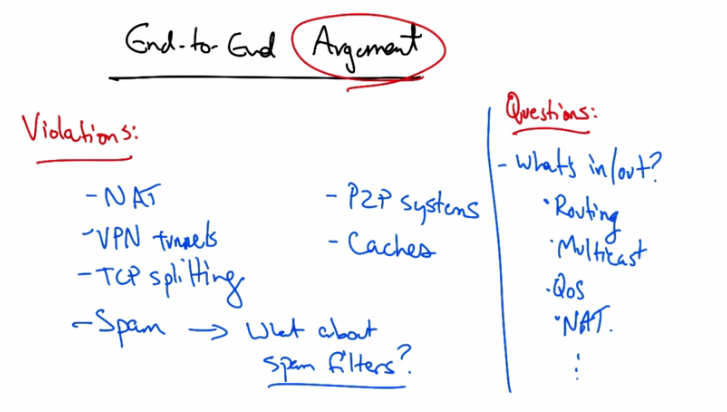 End-to-End Argument
Violations:
- NAT
- VPN tunnels
- TCP splitting
- Spam → What about
spam filters?
- P2P systems
- Caches
Questions:
- What's in/out?
· Routing
· Multicast
· QoS
· NAT.
⋮